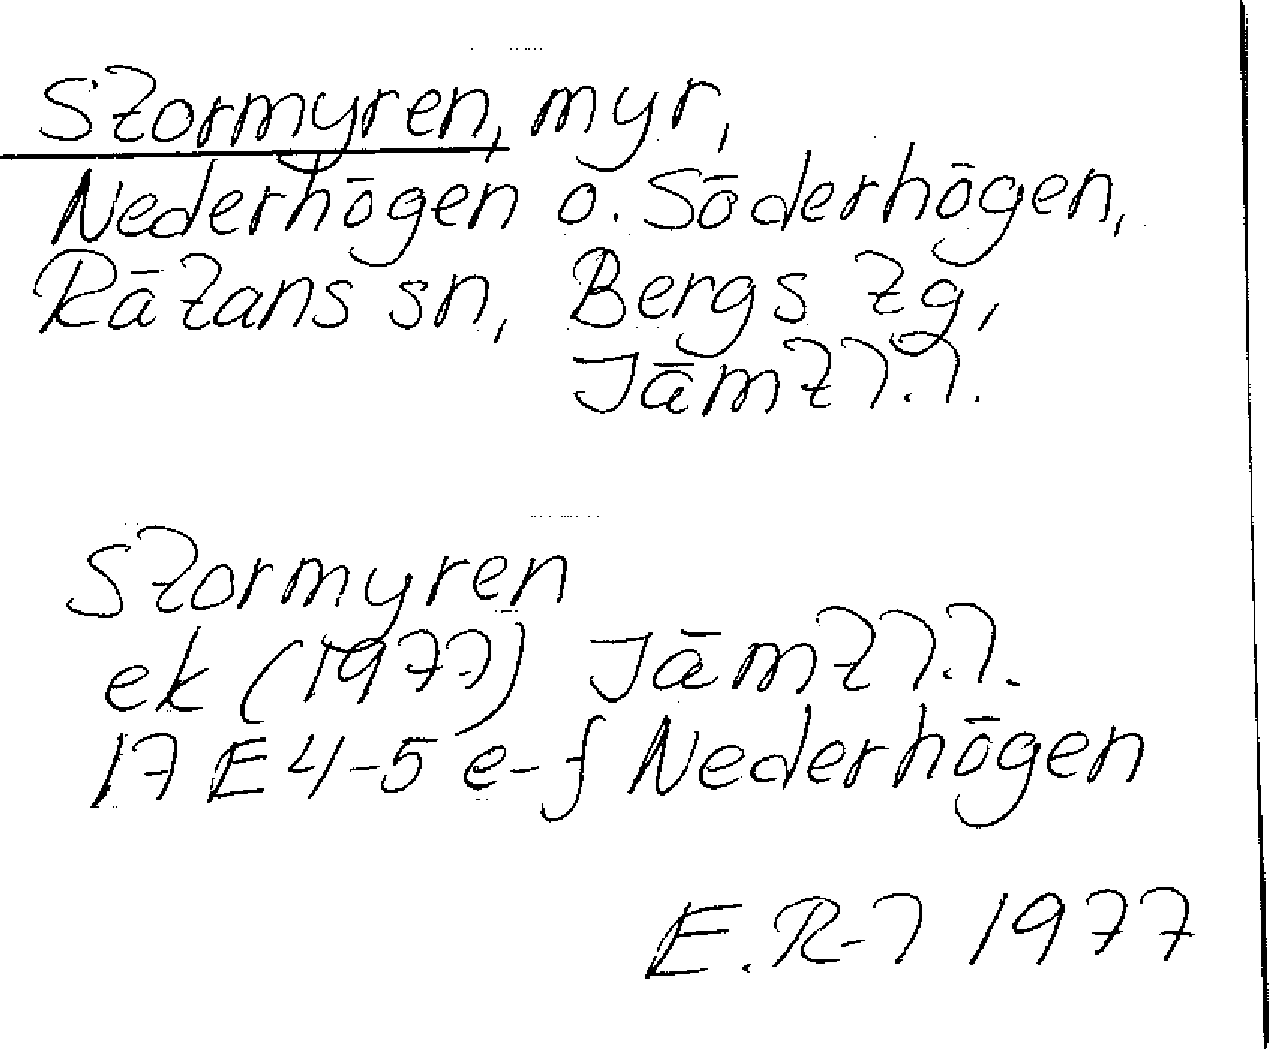 Stormyren, myr,
Nederhögen o. Söderhögen,
Rätans sn, Bergs tg,
Jämtl.l.
Stormyren
ek (1977) Jämtl.l.
17 E 4-5 e-f Nederhögen
E. R-l 1977